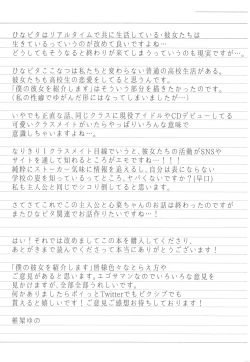 ひなビタはリアルタイムで共に生活している・彼女たちは
生きているっていうのが改めて良いですよね…
どうしてもそうなると終わりが来てしまうっていうのも現実ですが…。
ひなビタここなつは私たちと変わらない普通の高校生活がある。
彼女たちも高校生の恋愛をしてると思うんです。
「僕の彼女を紹介します」はそういう部分を描きたかったのです。
（私の性癖でゆがんだ形になってしまいましたが…）
いやでも正直な話、同じクラスに現役アイドルやCDデビューしてる
可愛いクラスメイトがいたらやっぱりいろんな意味で
意識しちゃいますよね…。
なりきり！クラスメイト目線でいうと、彼女たちの活動がSNSや
サイトを通して知れるところがエモですね…！！！
純粋にストーカー気味に情報を追えるし、自分は表にならない
学校の姿を知っているってところ、ヤバくないですか？（早口）
私も主人公と同じでシコり倒してると思います。
さてさてこれでこの主人公と心菜ちゃんのお話は終わったのですが
またひなビタ関連でお話作りたいですね…！
はい！それでは改めましてこの本を購入してくださり、
あとがきまで読んでくださって本当にありがとうございます！
「僕の彼女を紹介します」皆様色々なとらえ方や
ご意見があると思います。エゴサマンなのでいろいろな意見を
見かけますが、全部全部うれしいです。
何かありましたらポイっとTwitterでもピクシブでも
貰えると嬉しいです！ご意見ご感想お待ちしております！
椎架ゆの